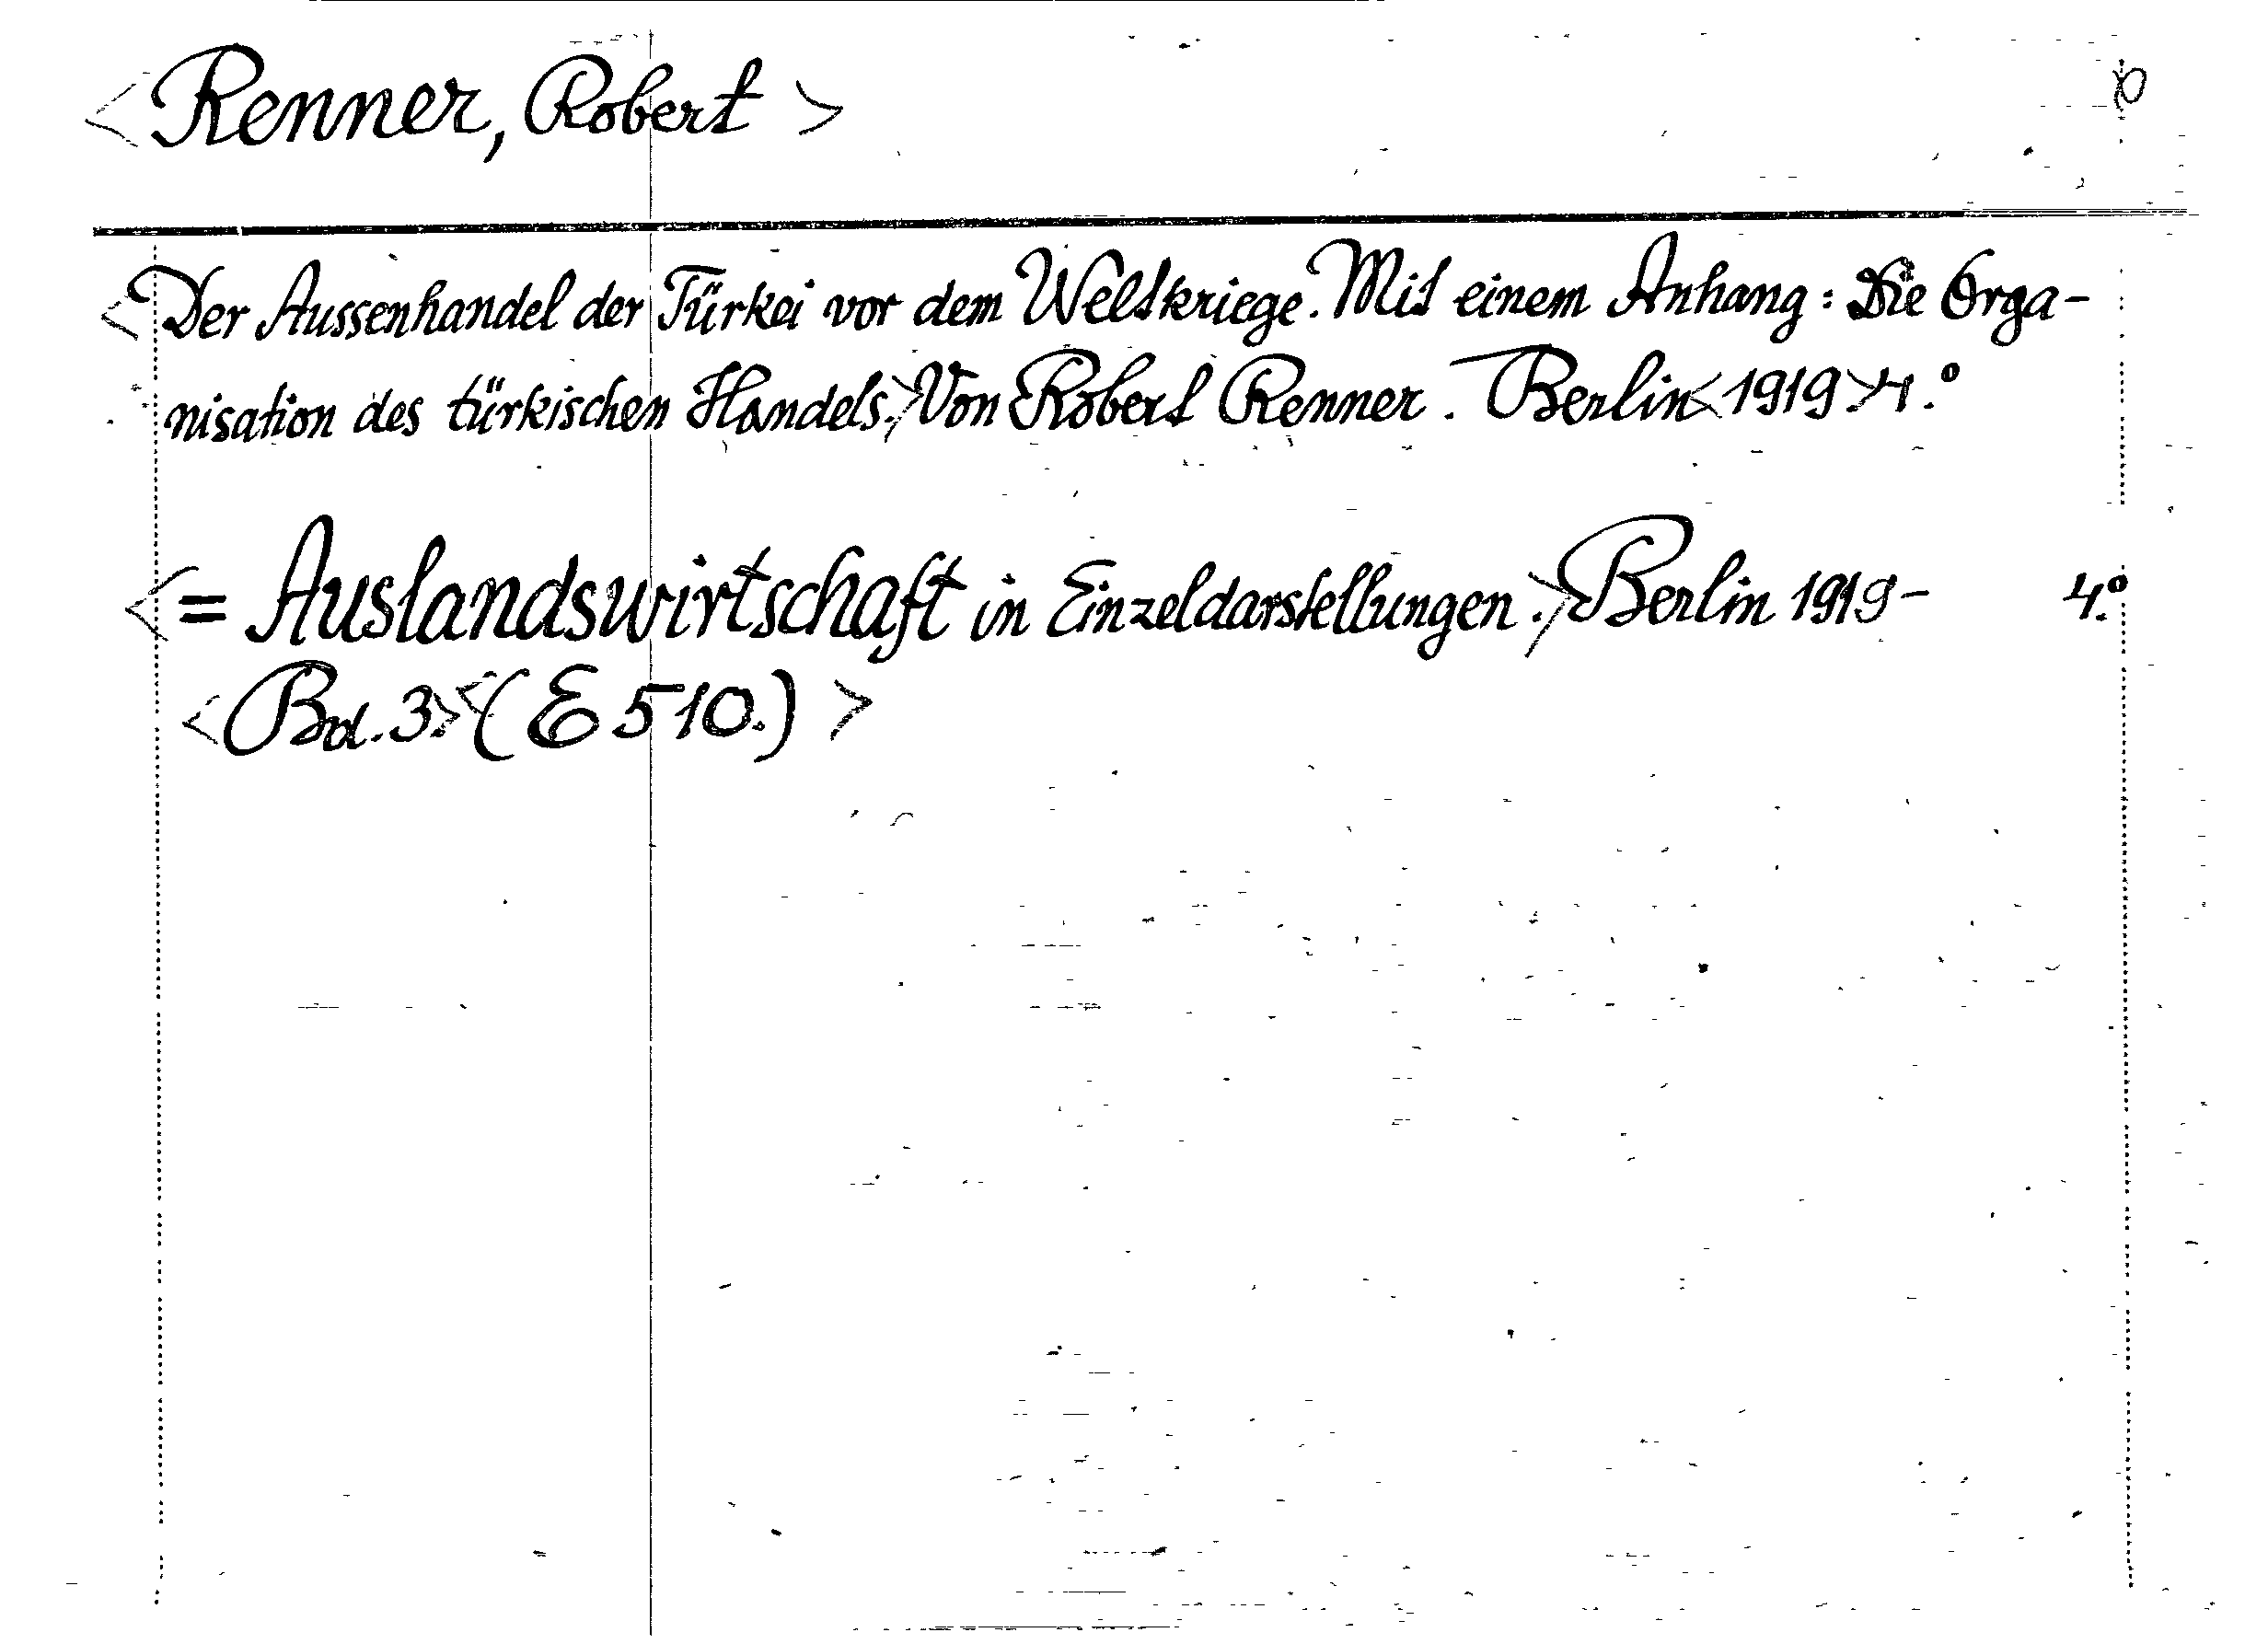 <Renner, Robert>
<Der Aussenhandel der Türkei vor dem Weltkriege. Mit einem Anhang: Die Orga-
nisation des türkischen Handels.> Von Robert Renner. Berlin <1919> 4.°
<= Auslandswirtschaft in Einzeldarstellungen.> Berlin 1919- 4.°
<Bd. 3.> <(E 510.)>